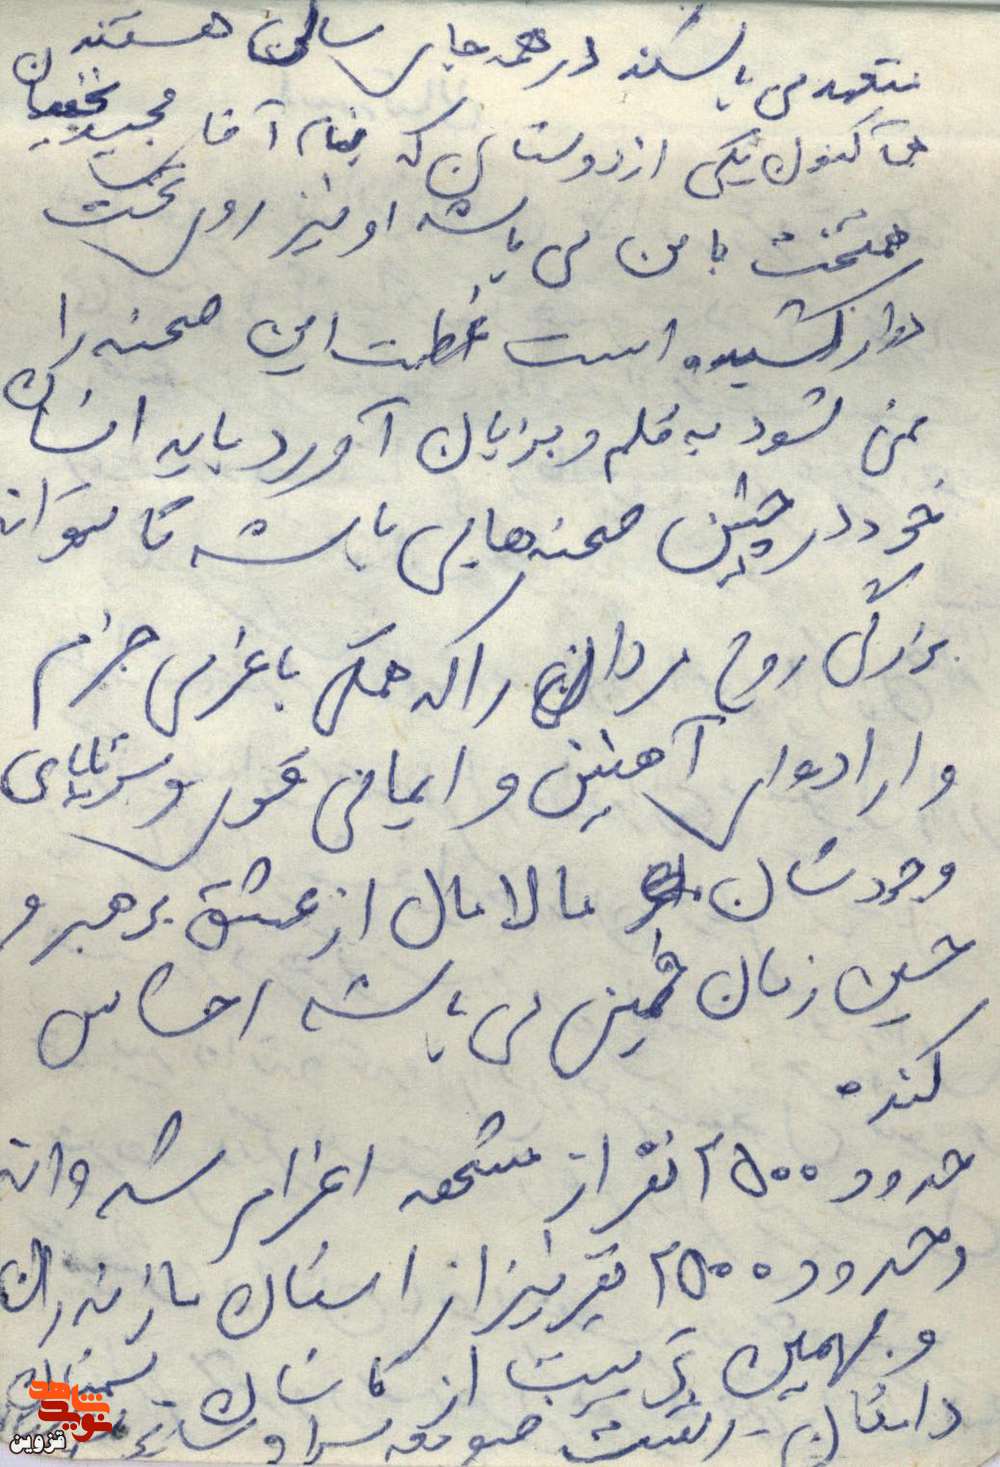 متعهد می باشند در همه جای سالن هستند
هم اکنون یکی از دوستان که بنام آقا مجید نخعیان
همتخت با من می باشد او نیز روی تخت
دراز کشیده است عظمت این صحنه را
نمی شود به قلم و بزبان آورد باید انسان
خود در چنین صحنه هایی باشد تا بتواند
بزرگی روح مردانی را که همگی با عزمی جزم
و اراده ای آهنین و ایمانی قوی و سرتاپای
وجودشان مالامال از عشق برهبر و
حسین زمان خمینی می باشد احساس
کند.
حدود ۲۵۰۰ نفر از اعزام شده اند
و حدود ۲۵۰۰ نفر نیز از استان مازندران
و بهمین ترتیب از کاشان سمنان
دامغان رشت صومعه سرا و
شاهد
نوید
قزوین